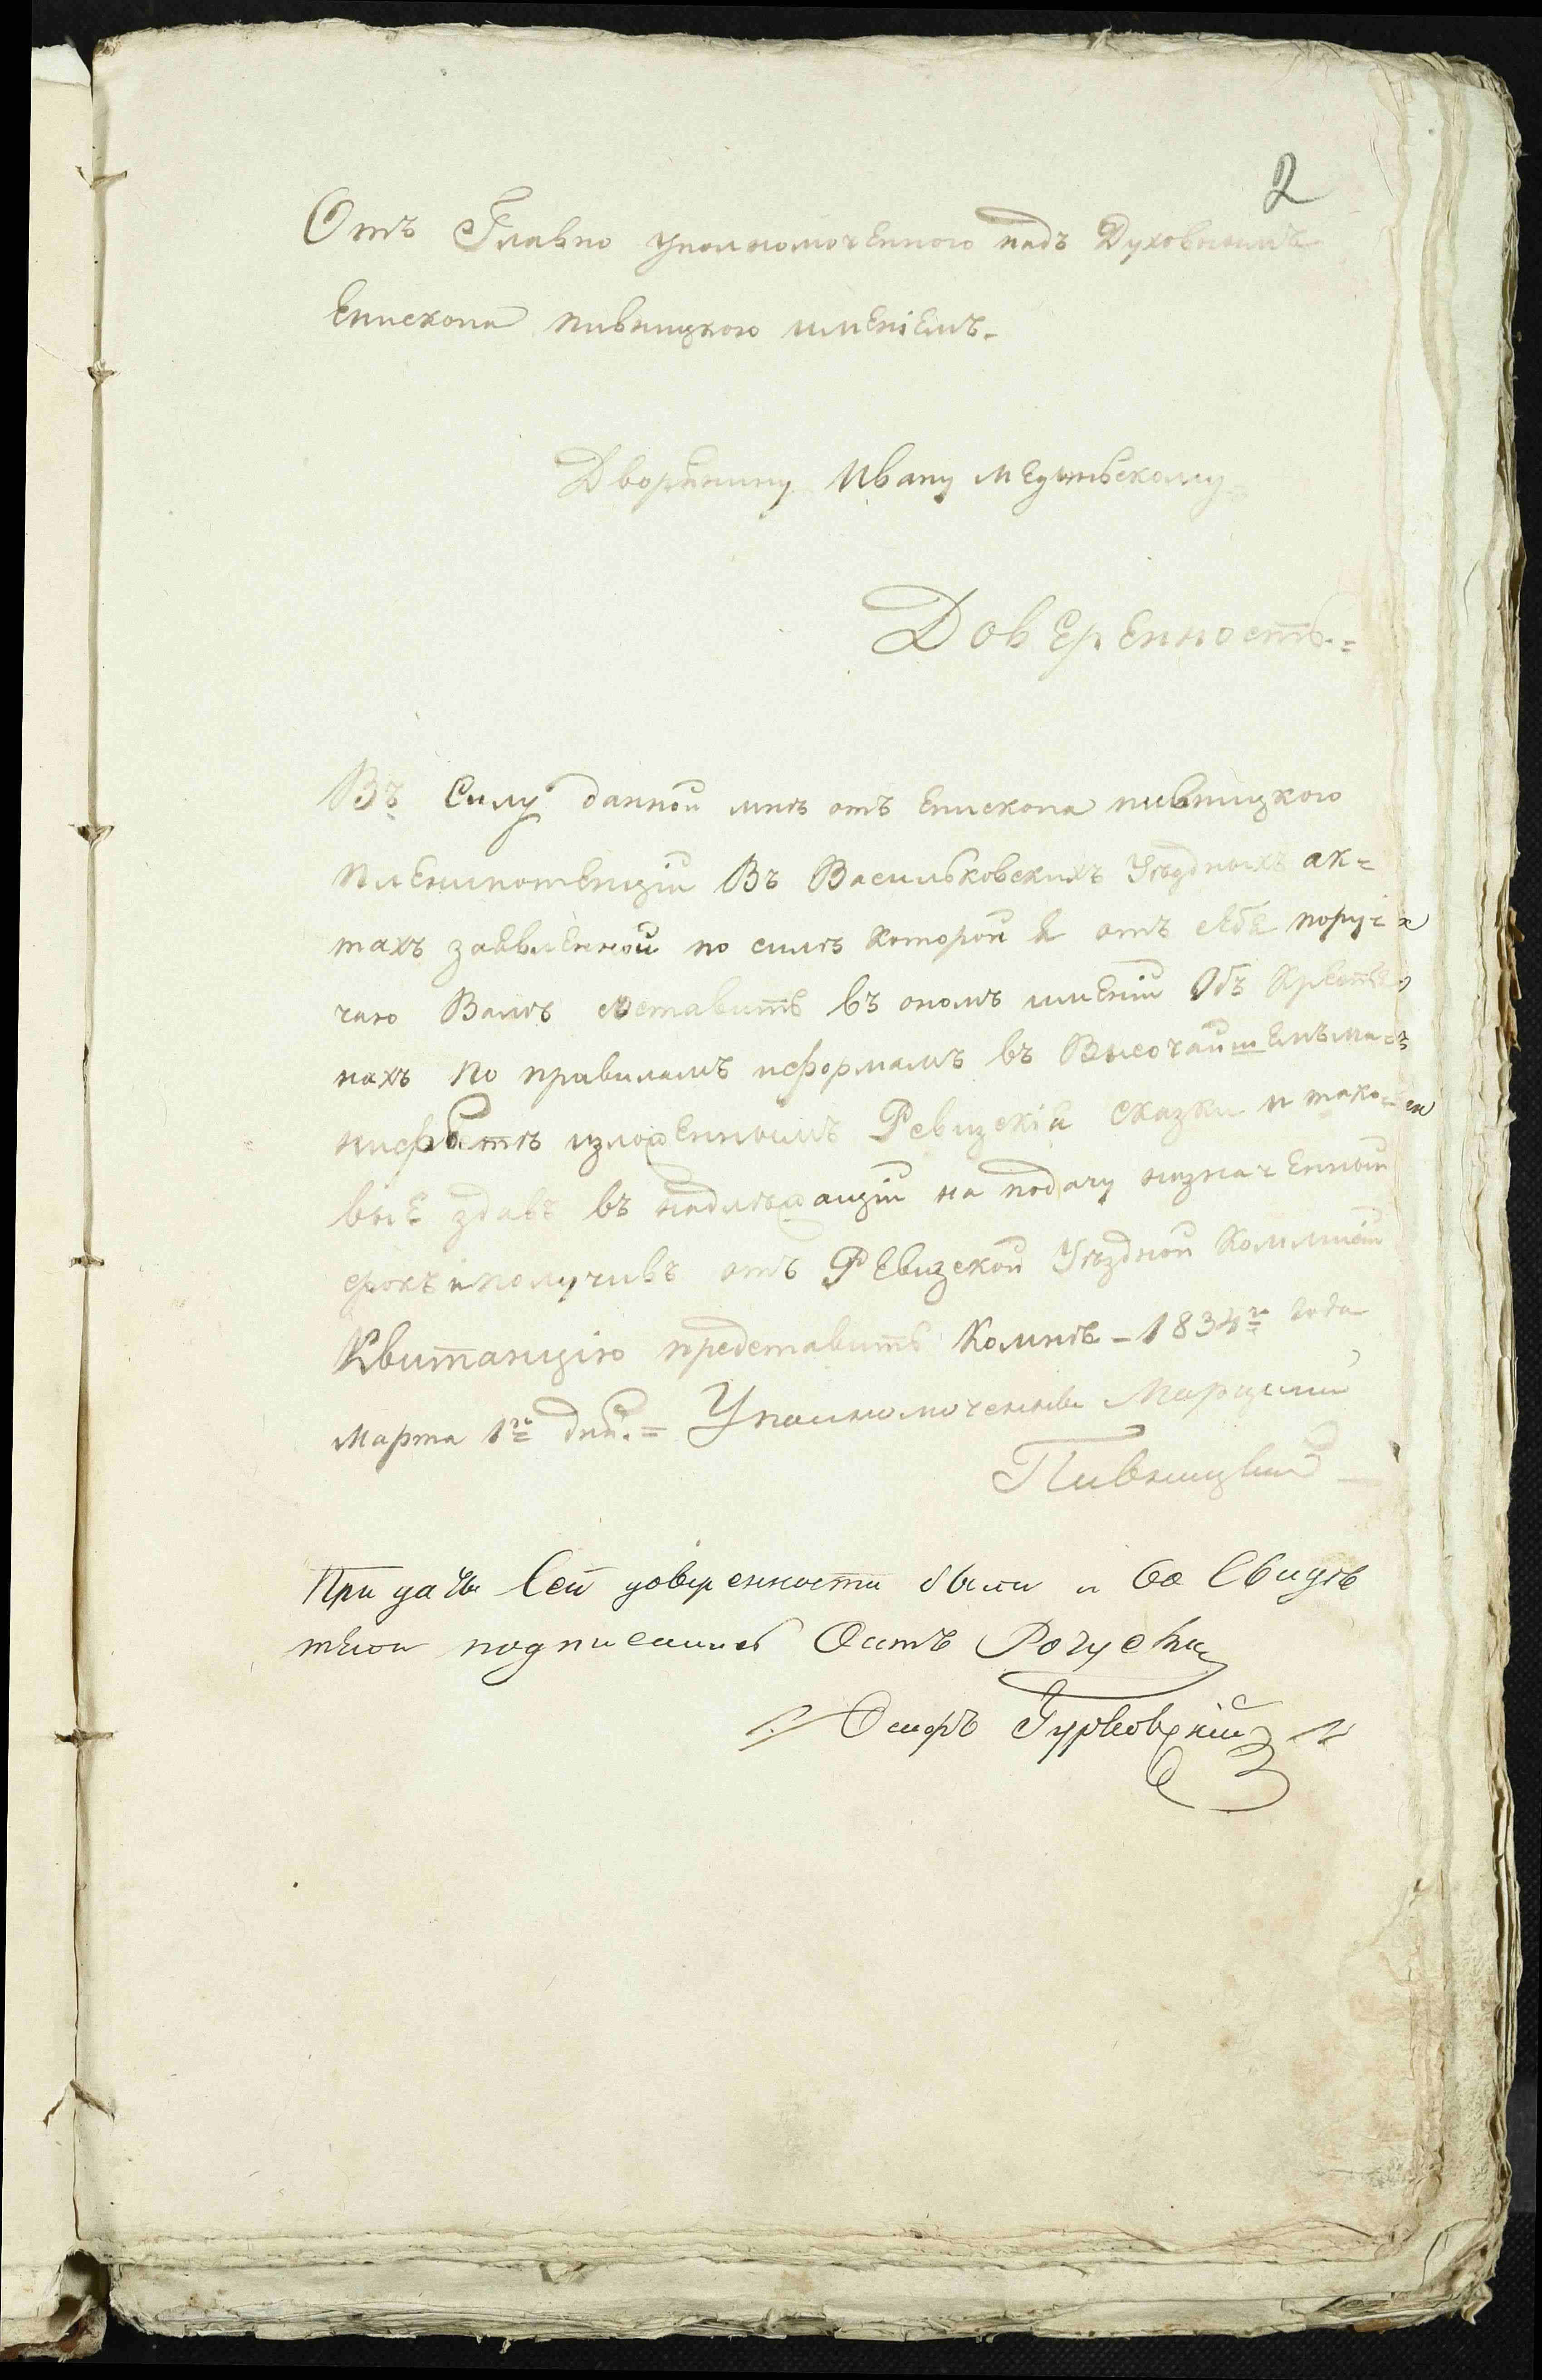 2
Отъ Главно уполномоченного надъ Духовнымъ
Епископа пивницкого имѣніемъ.
Дворянину Ивану
Доверенность.=
Въ Силу данной мнѣ отъ Епископа пивницкого
пленипотенціи Въ Васильковскихъ Уѣздныхъ ак=
тахъ заявленной по силѣ которой я отъ себя пору=
чаю Вамъ составить въ ономъ имѣніи Объ Крестья
нахъ по правиламъ иформамъ въ Высочайшемъ ма=
нифестѣ изложеннымъ Ревизскія сказки и тако=
выѣ здавъ въ надлѣжащій на подачу назначенный
срокъ и получивъ отъ Ревизской Уѣздной Коммисіи
Квитанцію представить Комнѣ - 1834го года
Марта 1го дня.= Уполномоченный Марцели
Пивницкий
При дачѣ Сей доверенности были и во Свидѣ
тели подписались
Осифъ Гурковскій